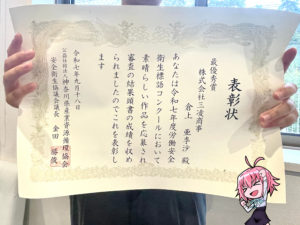 表彰状
最優秀賞
株式会社三凌商事
倉上 亜季沙 殿
あなたは令和七年度労働安全
衛生標語コンクールにおいて
素晴らしい作品を応募され
審査の結果頭書の成績を収め
られましたのでこれを表彰し
ます
令和七年九月十八日
公益社団法人神奈川県産業資源循環協会
安全衛生協議会議長 金田